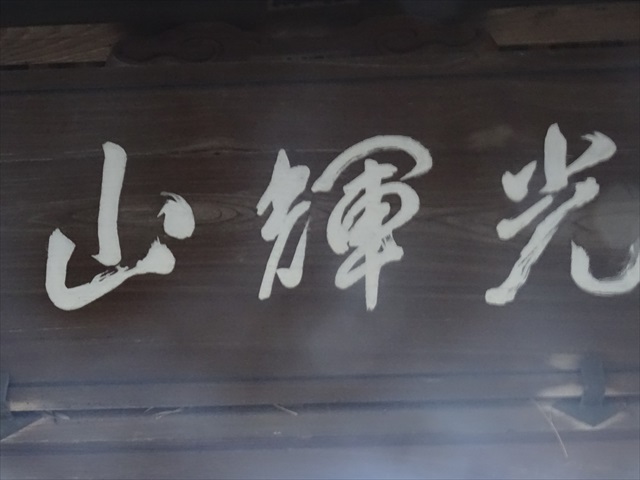 光輝山